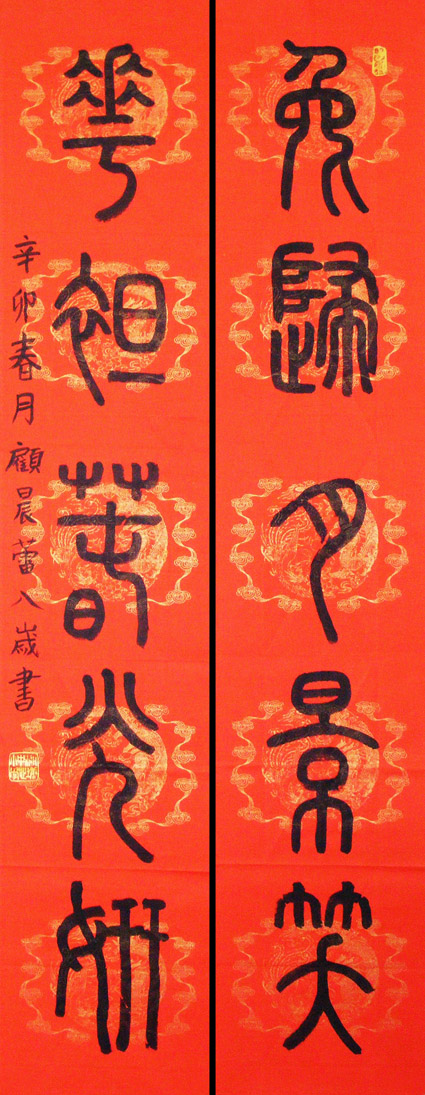 兔歸月景笑
華袒萅光妍
辛卯春月顧晨蕾八歲書